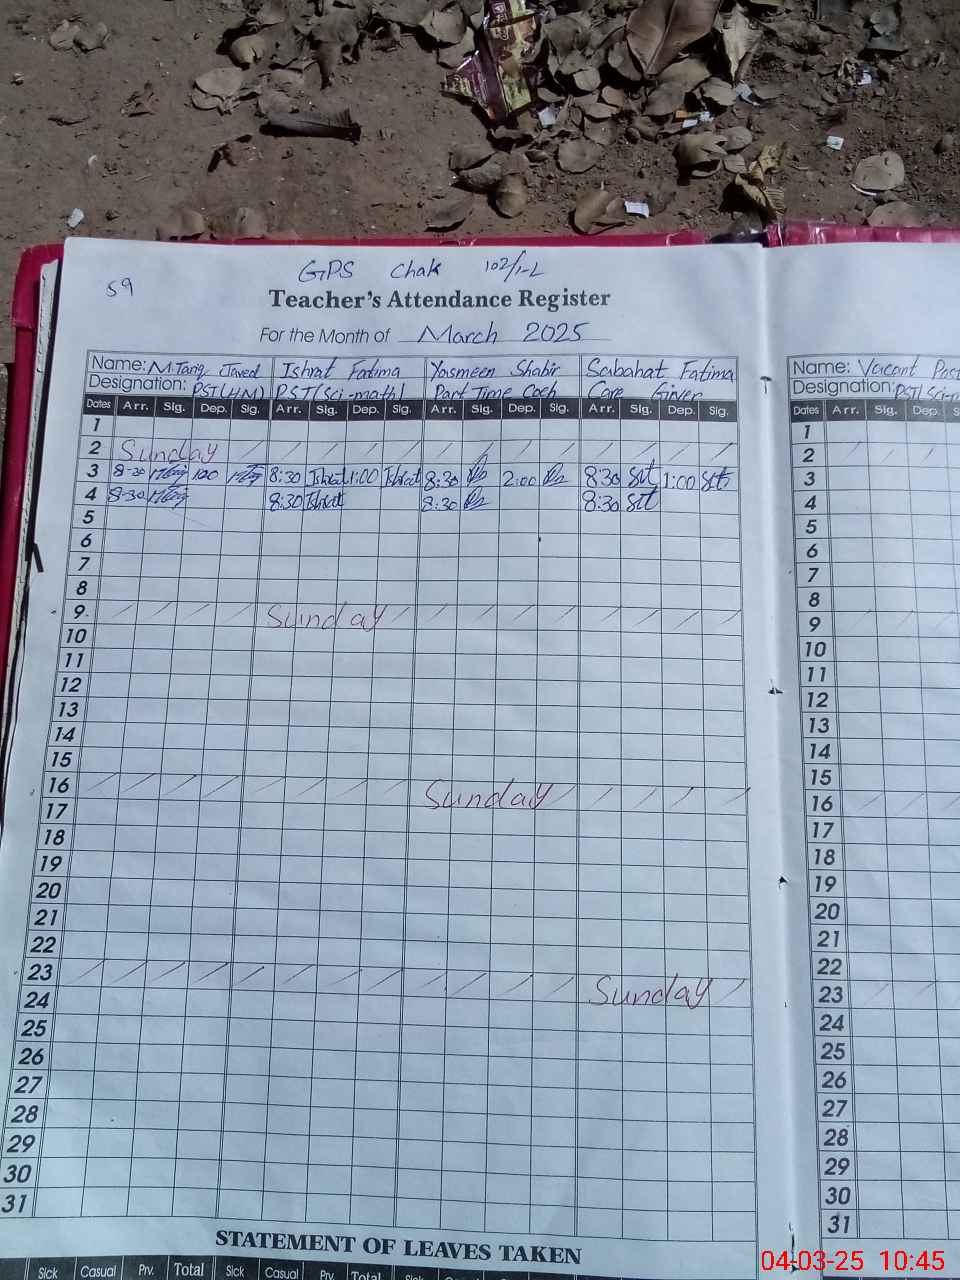 59
GPS Chak 102/1-L
Teacher's Attendance Register
For the Month of March 2025
Name: M. Tariq Javed Ishrat Fatima Yasmeen Shabir Sabahat Fatima
Designation: PST(HM) PST(Sci-math) Part Time Coch Care Giver
Dates Arr. Sig. Dep. Sig. Arr. Sig. Dep. Sig. Arr. Sig. Dep. Sig. Arr. Sig. Dep. Sig.
1
2 Sunday
3 8-30 1:00 8:30 Ishrat 1:00 Ishrat 8:30 2:00 8:30 1:00
4 8-30 8:30 Ishrat 8:30 8:30
5
6
7
8
9 Sunday
10
11
12
13
14
15
16 Sunday
17
18
19
20
21
22
23 Sunday
24
25
26
27
28
29
30
31
STATEMENT OF LEAVES TAKEN
Sick Casual Prv. Total Sick Casual Prv. Total Sick Casual
Name: Vacant Post
Designation: PST(Sci-
Dates Arr. Sig. Dep. S
1
2
3
4
5
6
7
8
9
10
11
12
13
14
15
16
17
18
19
20
21
22
23
24
25
26
27
28
29
30
31
04-03-25 10:45